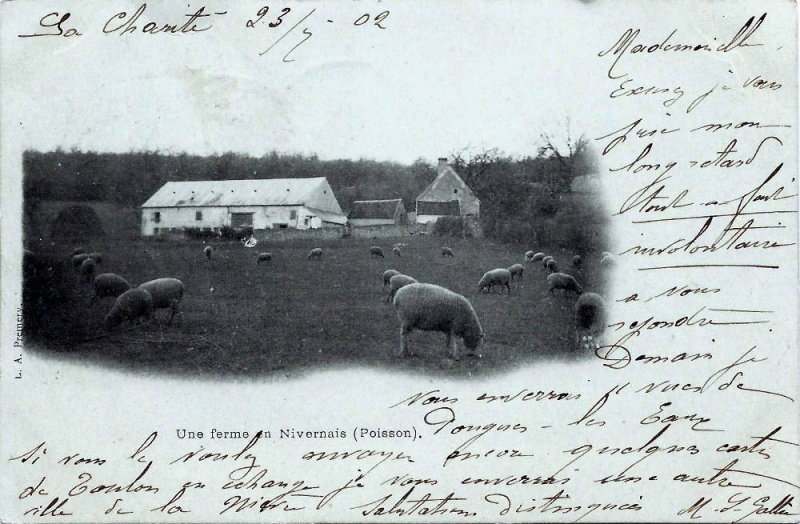 La Charité 23/7-02
Mademoiselle
Excusez je vous
prie mon
long retard
tout-a-fait
involontaire
a vous
repondre
Demain je
vous enverrai 11 vues de
Pougues-les Eaux
L. A. Premery.
Une ferme en Nivernais (Poisson).
Si vous le voulez envoyer encore quelques cartes
de Toulon en échange je vous enverrai une autre
ville de la Nièvre Salutations distinguées M. S.